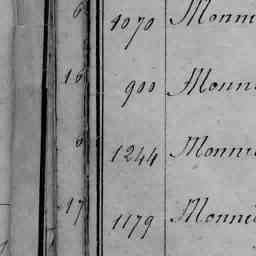 6 1070 Monni
16 900 Monni
6 1244 Monni
17 1179 Monni